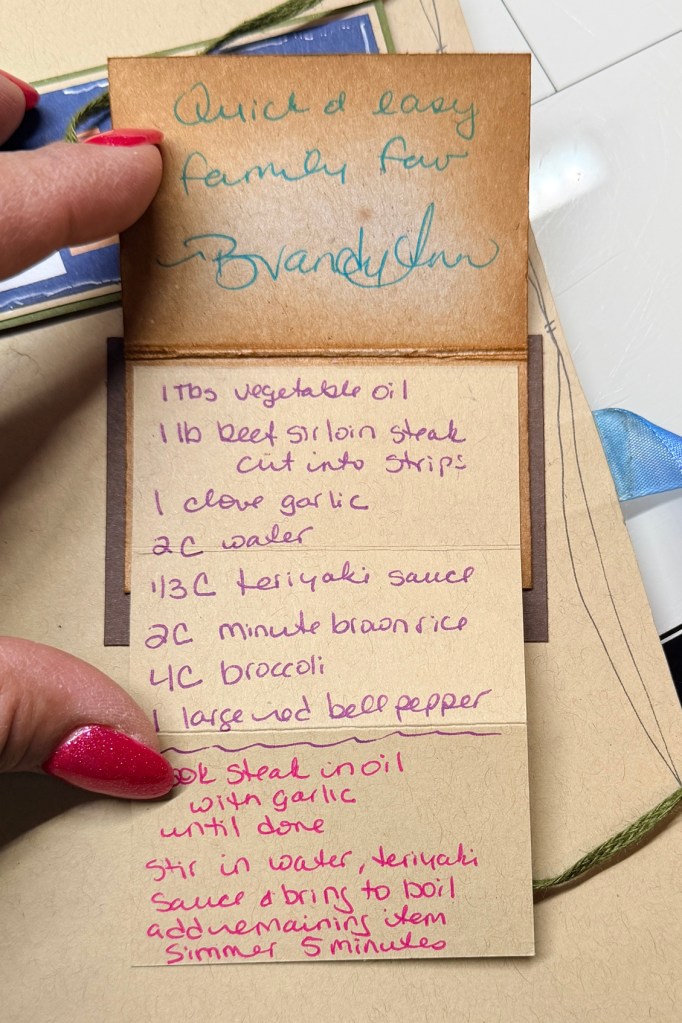 Quick & easy
family fav
~Brandy Ann
1 Tbs vegetable oil
1 lb beef sirloin steak
cut into strips
1 clove garlic
2C water
1/3C teriyaki sauce
2C minute brown rice
4C broccoli
1 large red bell pepper
steak in oil
with garlic
until done
Stir in water, teriyaki
sauce & bring to boil
add remaining item
Simmer 5 minutes